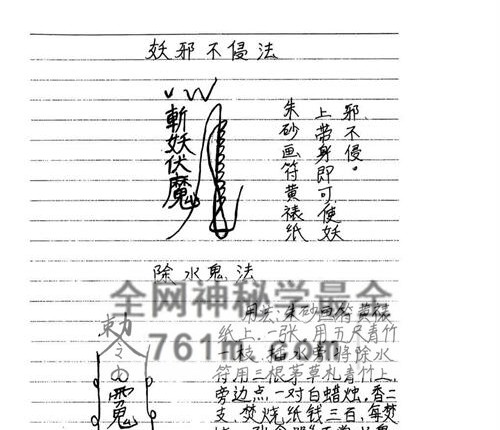 妖邪不侵法
斬妖伏魔
朱砂画符黄裱纸
上带身即可使妖
邪不侵。
除水鬼法
全网神秘学最全
761m.com
勅令
用法:朱砂画符黄裱
纸上,一张,用五尺青竹
一枝,插水剂将除水
符用三根茅草札青竹上,
旁边点一对白蜡烛,香二
支,焚烧纸钱三百,每焚